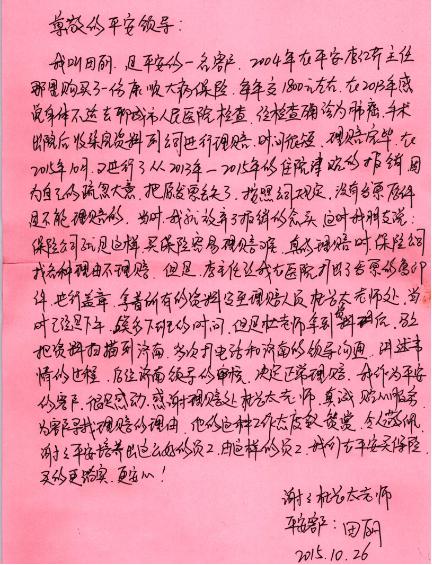 尊敬的平安领导:
我叫田丽,是平安的一名客户,2004年在平安唐红芹主任
那里购买了一份康顺大病保险,每年交1800元左右,在2013年感
觉身体不适去聊城市人民医院检查,经检查确诊为肺癌,手术
出院后收集完资料到公司进行理赔,时间很短,理赔完毕,在
2015年10月,又进行了从2013年—2015年的住院津贴的报销,因
为自己的疏忽大意,把原发票丢了,按照公司规定,没有发票原件
是不能理赔的,当时,我就放弃了报销的念头,这时我朋友说:
保险公司就是这样,买保险容易理赔难,真的理赔时,保险公司
找各种理由不理赔,但是,李主任让我在医院,打出了发票的复印
件,进行盖章,拿着所有的资料送到理赔人员杜兰太老师处,当
时已经是下午,接近下班的时间,但是杜老师拿到资料后,马上
把资料扫描到济南,多次打电话和济南的领导沟通,讲述事
情的过程,后经济南领导的审核,决定正常理赔,我作为平安
的客户,很是感动,感谢理赔处杜兰太老师,真诚贴心服务,
为客户寻找理赔的理由,他的这种工作态度较赞赏,令人敬佩,
谢谢平安培养出这么好的员工,由这样的员工,我们在平安买保险,
买的更踏实,更安心!
谢谢杜兰太老师
平安客户:田丽
2015.10.26